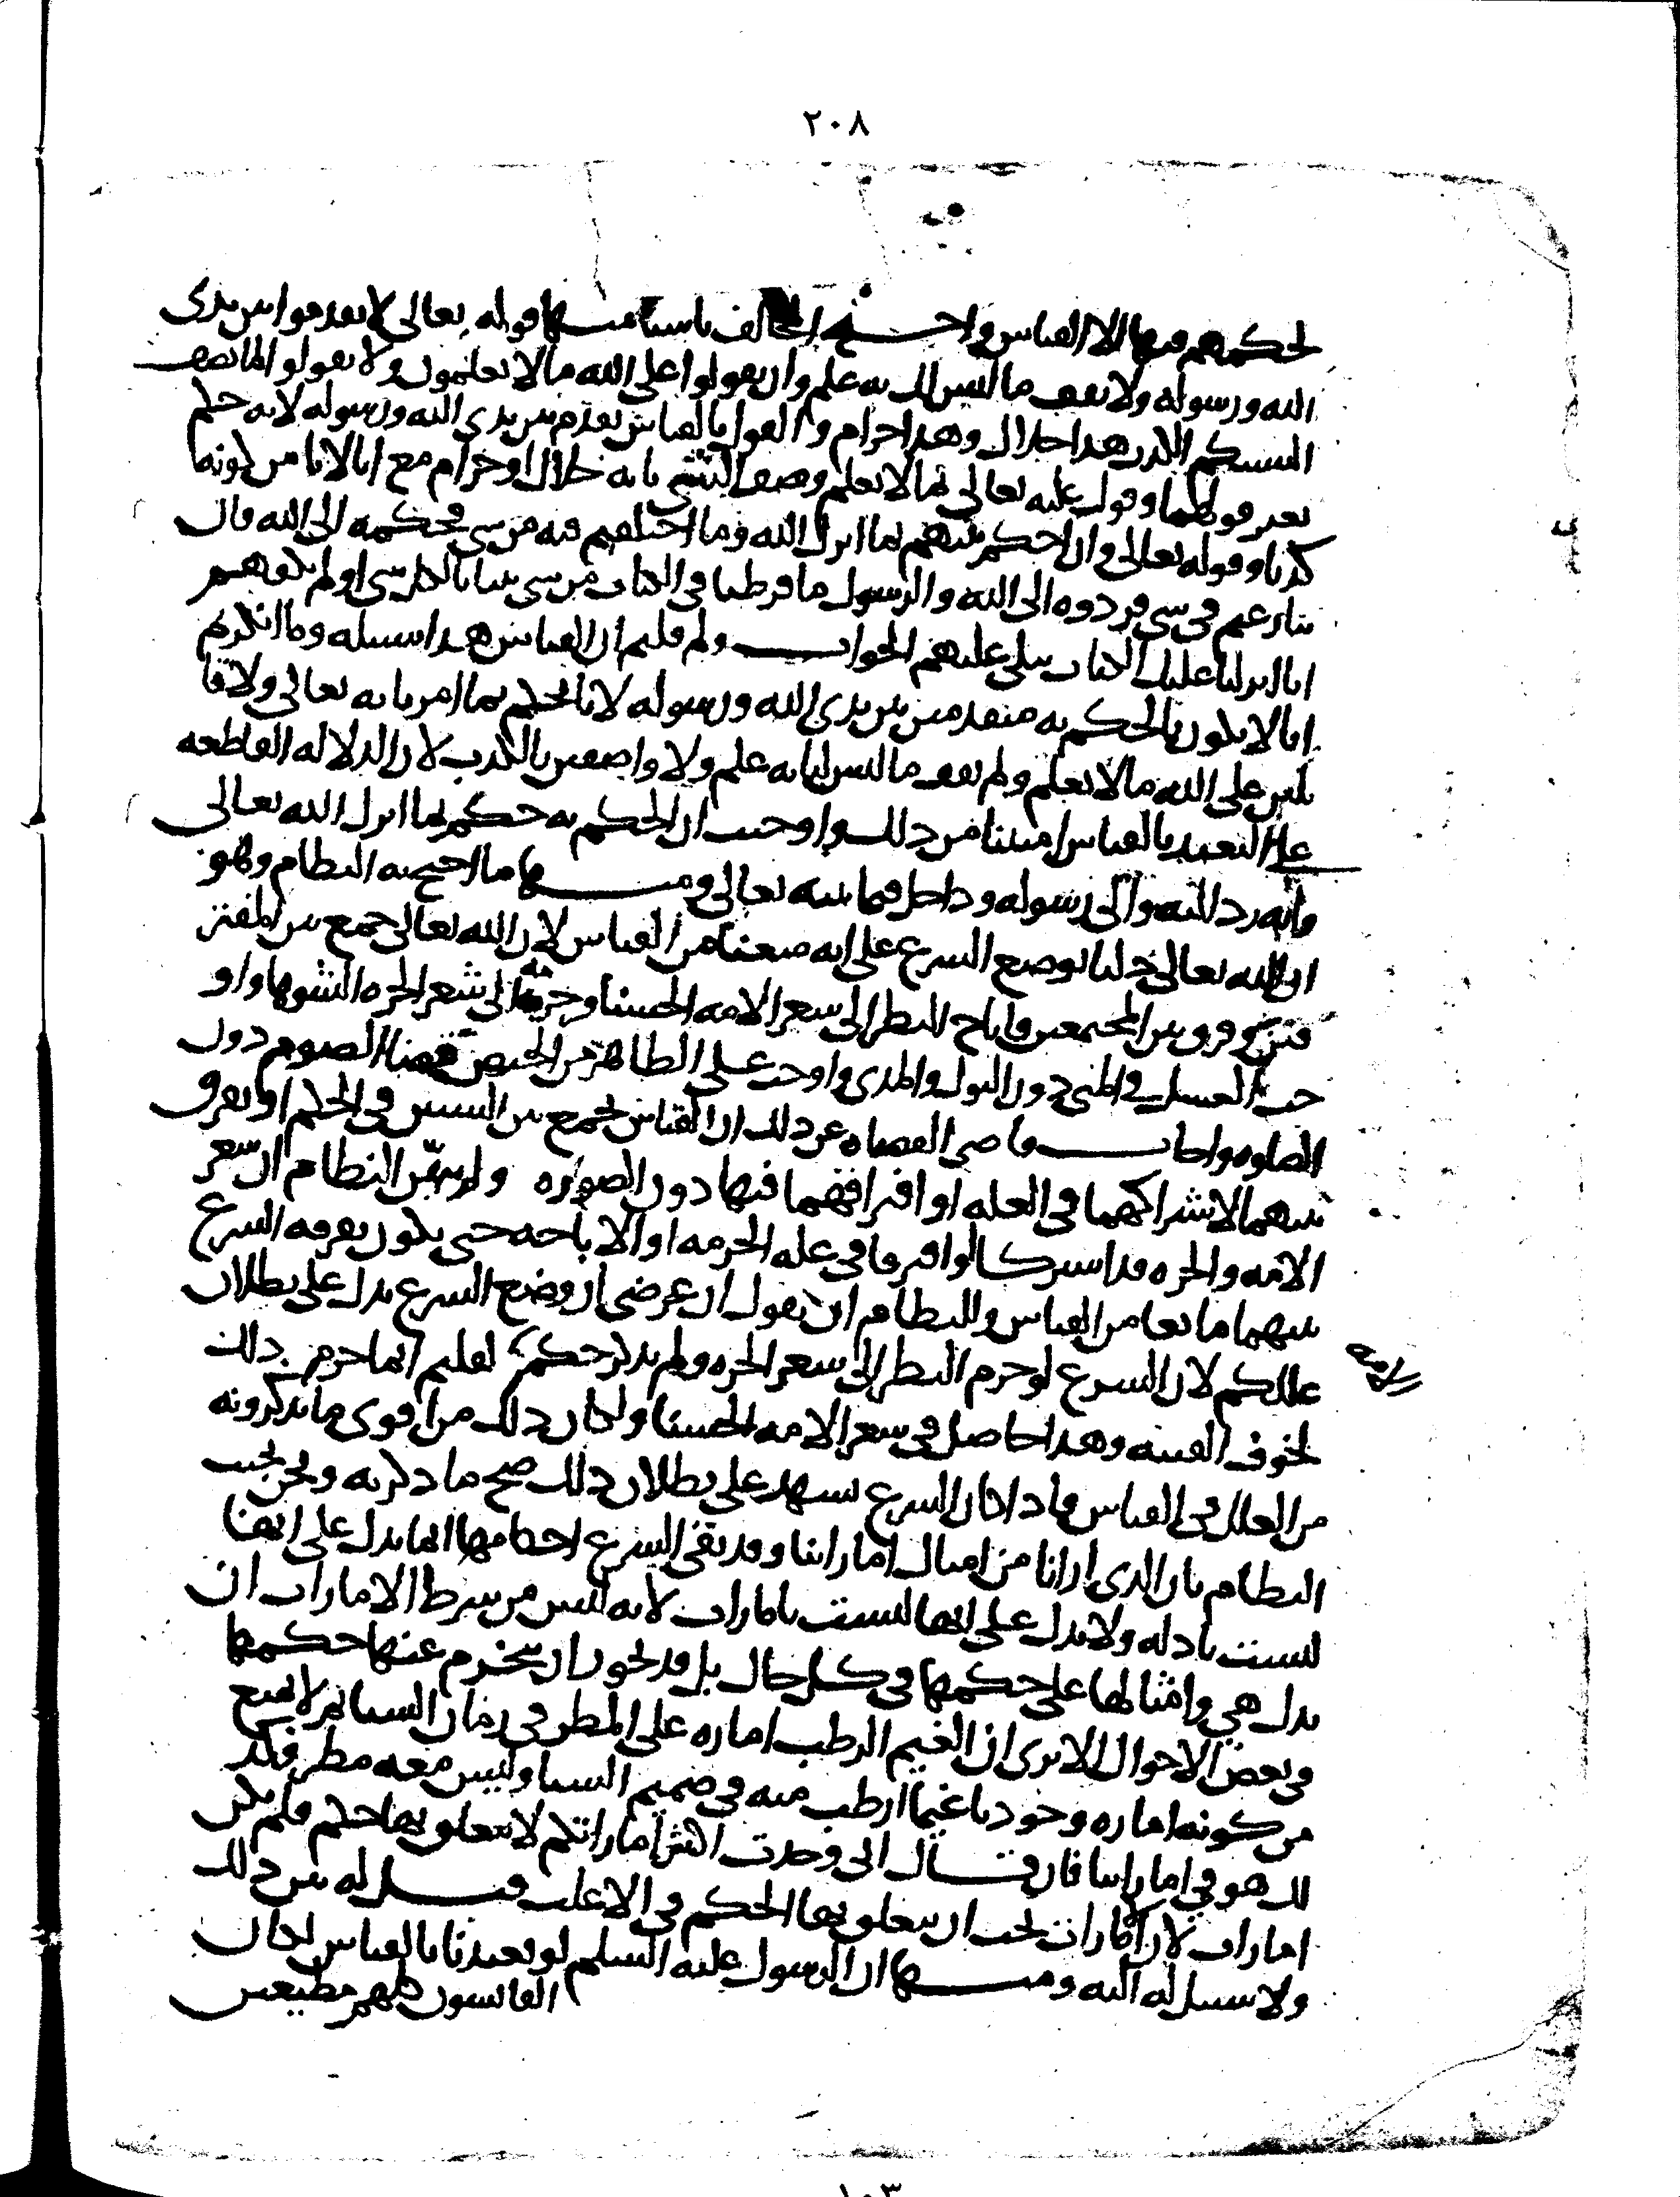 ٢٠٨
لحكمهم فيها الا القياس واحتج المخالف باشيا منها قوله تعالى لا تقدموا بين يدى
الله ورسوله ولا تقف ما ليس لك به علم وان تقولوا على الله ما لا تعلمون ولا تقولوا لما تصف
السنتكم الكذب هذا حلال وهذا حرام والقول بالقياس تقدم بين يدى الله ورسوله لانه حكم
بغير قولهما وقول عليه تعالى بما لا نعلم وصف الشى بانه حلال او حرام مع انا لا نامن كونها
كذبا وقوله تعالى وان احكم بينهم بما انزل الله وما اختلفتم فيه من شى فحكمه الى الله فان
تنازعتم فى شى فردوه الى الله والرسول ما فرطنا فى الكتاب من شى تبيانا لكل شى اولم يكفهم
انا انزلنا عليك الكتاب يتلى عليهم الجواب ولم قلتم ان القياس هذا سبيله وما انكرتم
انا لا نكون بالحكم به متقدمين بين يدى الله ورسوله لانا نحكم بما امرنا به تعالى ولا قا
ئلين على الله ما لا نعلم ولم نقف ما ليس لنا به علم ولا واصفين بالكذب لان الدلالة القاطعه
على التعبد بالقياس امنتنا من ذلك واوجبت ان الحكم به حكم بما انزل الله تعالى
وانه رد لله والى رسوله وداخل فيما بينه تعالى ومنها ما احتج به النظام وهو
ان الله تعالى دلنا بوضع الشرع على انه منعنا من القياس لان الله تعالى جمع بين المفتر
قين وفرق بين المجتمعين فاباح النظر الى شعر الامه الحسنا وحرمه الى شعر الحره الشوها واو
جب الغسل فى المنى دون البول والمذى واوجب على الطاهر من الحيض قضا الصوم دون
الصلوه واجاب قاضى القضاه عن ذلك ان القياس يجمع بين الشيين فى الحكم او يفرق
بينهما لاشتراكهما فى العله او افتراقهما فيها دون الصوره ولم يبين النظام ان شعر
الامه والحره قد اشتركا او افترقا فى عله الحرمه او الاباحه حتى يكون تفرقه الشرع
بينهما مانعا من القياس وللنظام ان يقول ان غرضى ان وضع الشرع يدل على بطلان
عللكم لان الشرع لو حرم النظر الى شعر الحره ولم يذكر حكم لقلتم انما حرم ذلك
لخوف الفتنه وهذا حاصل فى شعر الامه الحسنا ولكان ذلك من اقوى ما تذكرونه
من العلل فى القياس فاذا كان الشرع يشهد على بطلان ذلك صح ما ذكرته ونحن نجيب
النظام بان الذى ارانا من امثال اماراتنا وقد نفى الشرع احكامها انما يدل على انها
ليست بادله ولا يدل على انها ليست بامارات لانه ليس من شرط الامارات ان
تدل هى وامثالها على حكمها فى كل حال بل قد يجوز ان ينخرم عنها حكمها
فى بعض الاحوال الا ترى ان الغيم الرطب اماره على المطر فى زمان الشتا ثم لا يمنع
من كونه اماره وجودنا غيما ارطب منه فى صميم الشتا وليس معه مطر فكذ
لك هو فى اماراتنا فان قال انى وجدت اكثر اماراتكم لا يتعلق بها حكم فلم يكن
امارات لان الامارات يجب ان يتعلق بها الحكم فى الاغلب قيل له بين ذلك
ولا سبيل له اليه ومنها ان الرسول عليه السلم لو تعبدنا بالقياس لكان
القائسون كلهم مطيعين
١٠٣